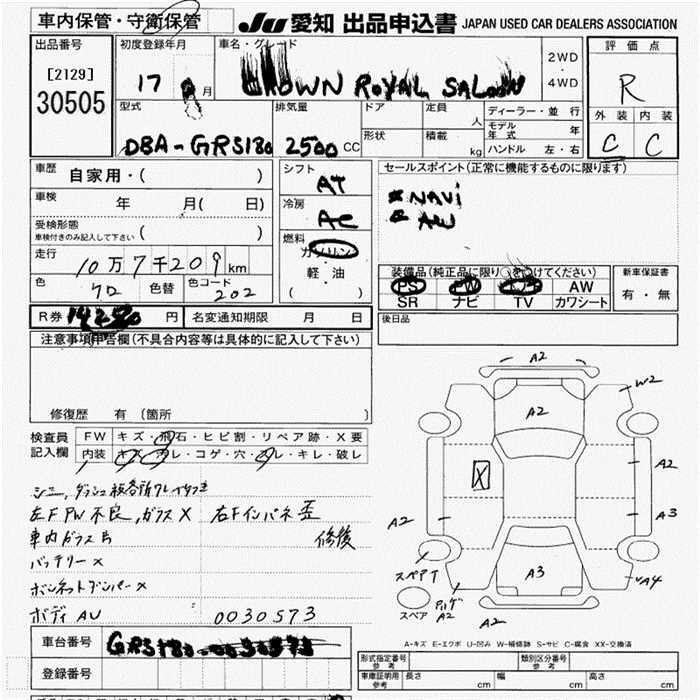 車内保管・守衛保管
JU 愛知 出品申込書 JAPAN USED CAR DEALERS ASSOCIATION
出品番号
[2129]
30505
初度登録年月
17 月
車名・グレード
CROWN ROYAL SALOON
2WD
・
4WD
評価点
R
外装 内装
C C
型式
DBA-GRS180
排気量
2500 CC
ドア
形状
定員 人
積載 kg
ディーラー・並行
モデル年式 年
ハンドル 左・右
車歴 自家用・( )
車検 年 月( 日)
受検形態
車検付きのみ記入して下さい ( )
走行 10万7千209km
色 クロ 色替 色コード 202
シフト AT
冷房 AC
燃料
ガソリン
軽・油
( )
セールスポイント(正常に機能するものに限ります)
NAVi
装備品(純正品に限り○をつけてください)
PS PW AW
SR ナビ TV カワシート
新車保証書
有・無
R券 円 名変通知期限 月 日
後日品
注意事項申告欄(不具合内容等は具体的に記入して下さい)
修復歴 有(箇所 )
検査員記入欄
FW キズ・飛石・ヒビ割・リペア跡・X要
内装 キズ・汚レ・コゲ・穴・スレ・キレ・破レ
左F PW 不良,ガラスX 右Fインパネ歪
修後
車内ガラス
バッテリーX
ボンネットダンパーX
ボディ AU 0030573
車台番号 GRS180-0030573
登録番号
A2
A2
W2
X
A2
A2
A3
A3
A4
スペアT
スペア
A2
A2
A-キズ E-エクボ U-凹み W-補修跡 S-サビ C-腐食 XX-交換済
形式指定番号 参考
類別区分番号 参考
車庫証明用 参考 長さ cm 幅 cm 高さ cm